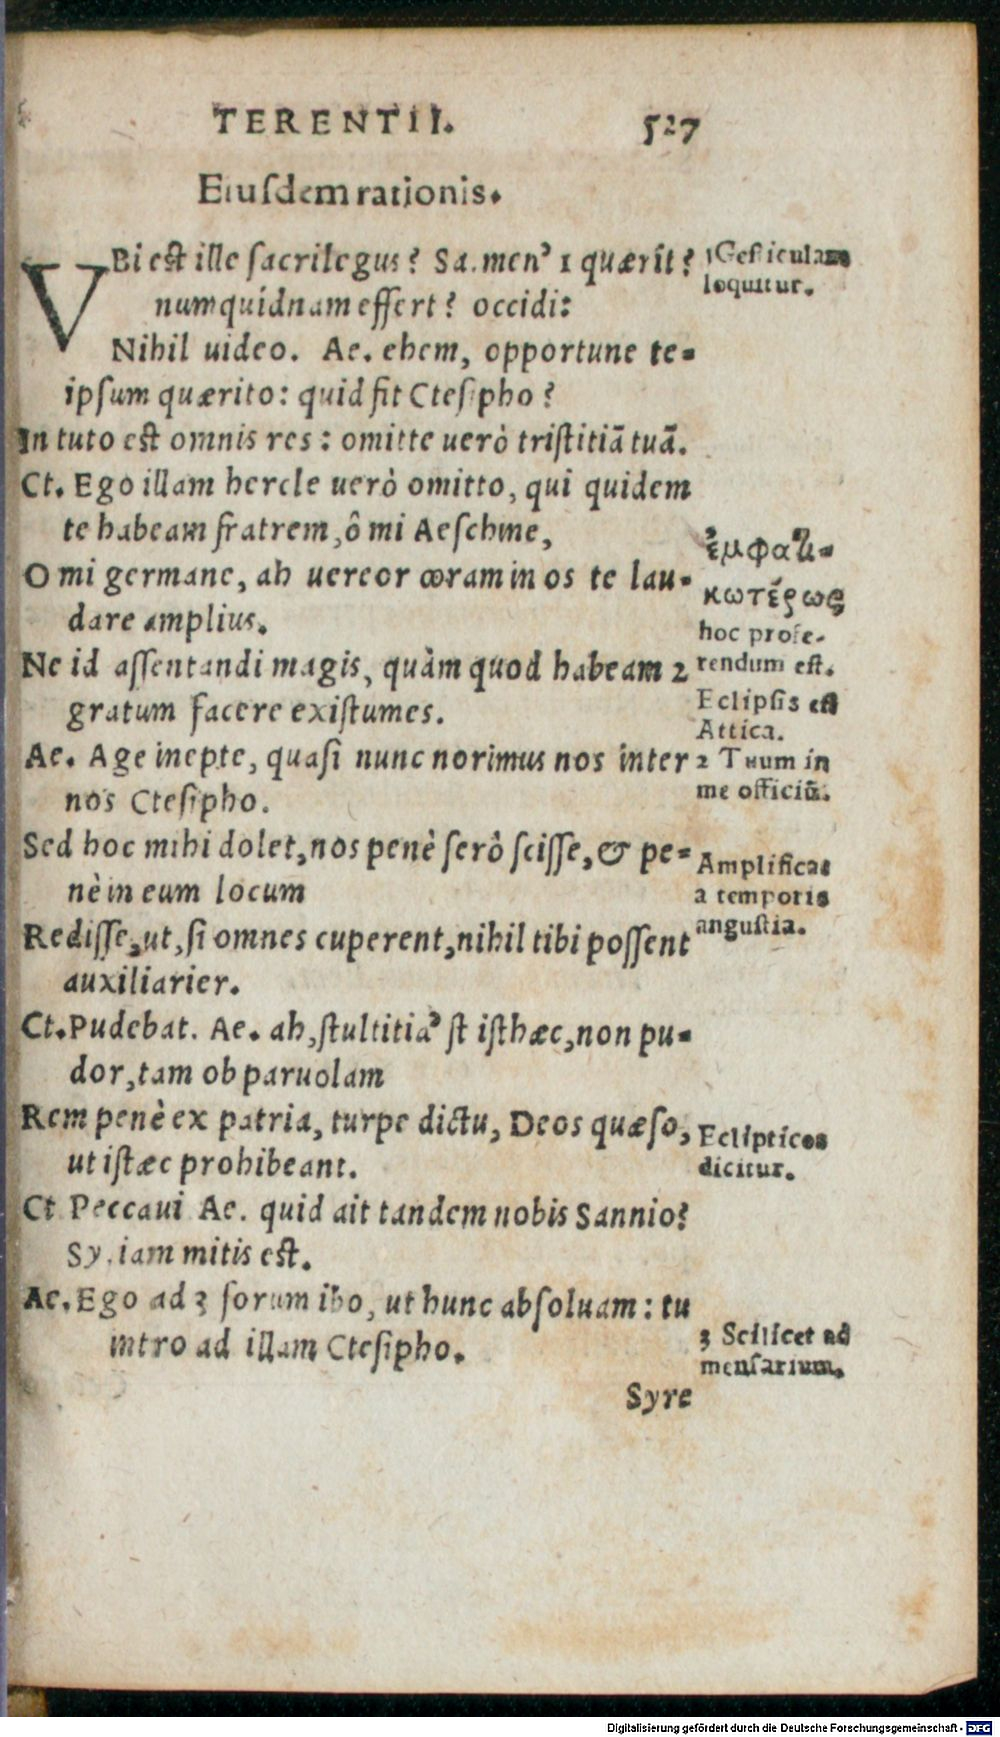 TERENTII. 527
Eiusdem rationis.
VBi est ille sacrilegus? Sa. men' 1 quærit?
numquidnam effert? occidi:
Nihil uideo. Ae. ehem, opportune te-
ipsum quærito: quid fit Ctesipho?
In tuto est omnis res: omitte uerò tristitiã tuã.
Ct. Ego illam hercle uerò omitto, qui quidem
te habeam fratrem, ô mi Aeschine,
O mi germane, ah uereor coram in os te lau-
dare amplius.
Ne id assentandi magis, quàm quod habeam 2
gratum facere existumes.
Ae. Age inepte, quasi nunc norimus nos inter
nos Ctesipho.
Sed hoc mihi dolet, nos penè serò scisse, & pe-
nè in eum locum
Redisse, ut, si omnes cuperent, nihil tibi possent
auxiliarier.
Ct. Pudebat. Ae. ah, stultitia' st isthæc, non pu-
dor, tam ob paruolam
Rem penè ex patria, turpe dictu, Deos quæso,
ut istæc prohibeant.
Ct Peccaui Ae. quid ait tandem nobis Sannio?
Sy. iam mitis est.
Ae. Ego ad 3 forum ibo, ut hunc absoluam: tu
intro ad illam Ctesipho.
Syre
1 Gesticulans
loquitur.
ἐμφατι-
κωτέρως
hoc profe-
rendum est.
Eclipsis est
Attica.
2 Tuum in
me officiũ.
Amplificat
a temporis
angustia.
Eclipticos
dicitur.
3 Scilicet ad
mensarium.
Digitalisierung gefördert durch die Deutsche Forschungsgemeinschaft - DFG